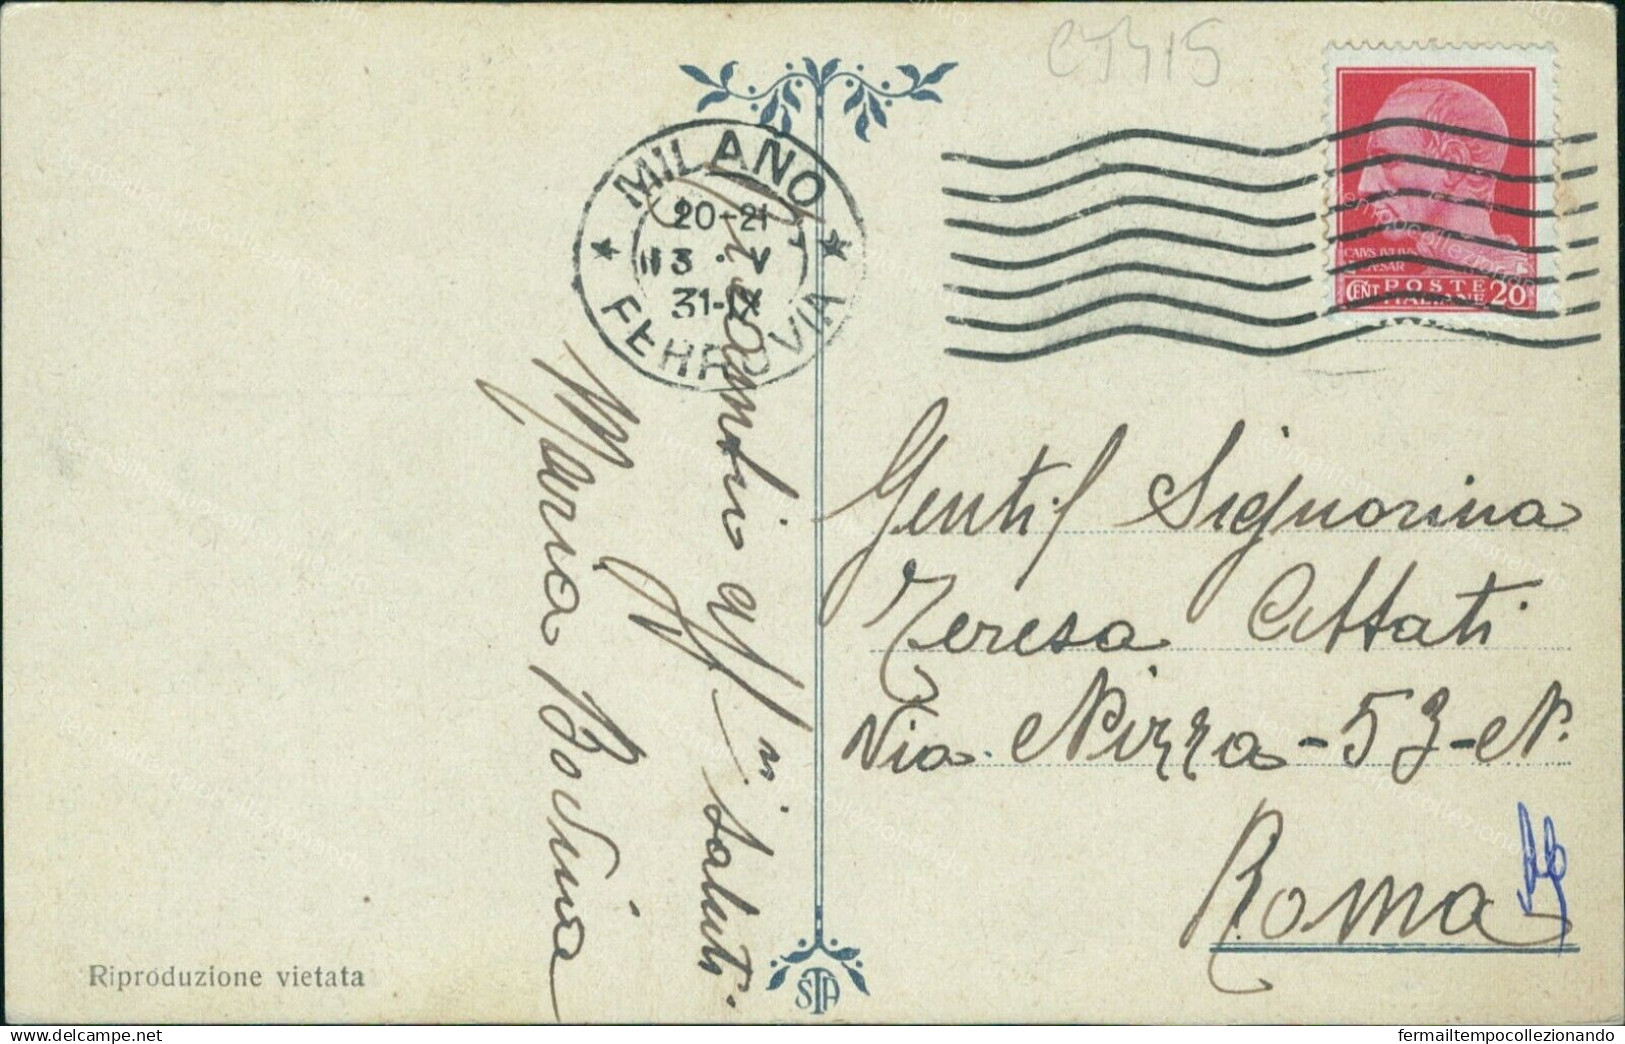 CT415
MILANO
20-21
13 · V
31-IX
FERROVIA
CAIVS IVLIVS
CAESAR
CENT POSTE 20
ITALIANE
Ricambio aff.
saluti.
Maria
Gentil Signorina
Teresa Attati
Via Nizza - 53 - N.
Roma
Riprod uzione vietata
STA
fermailtempocollezionando